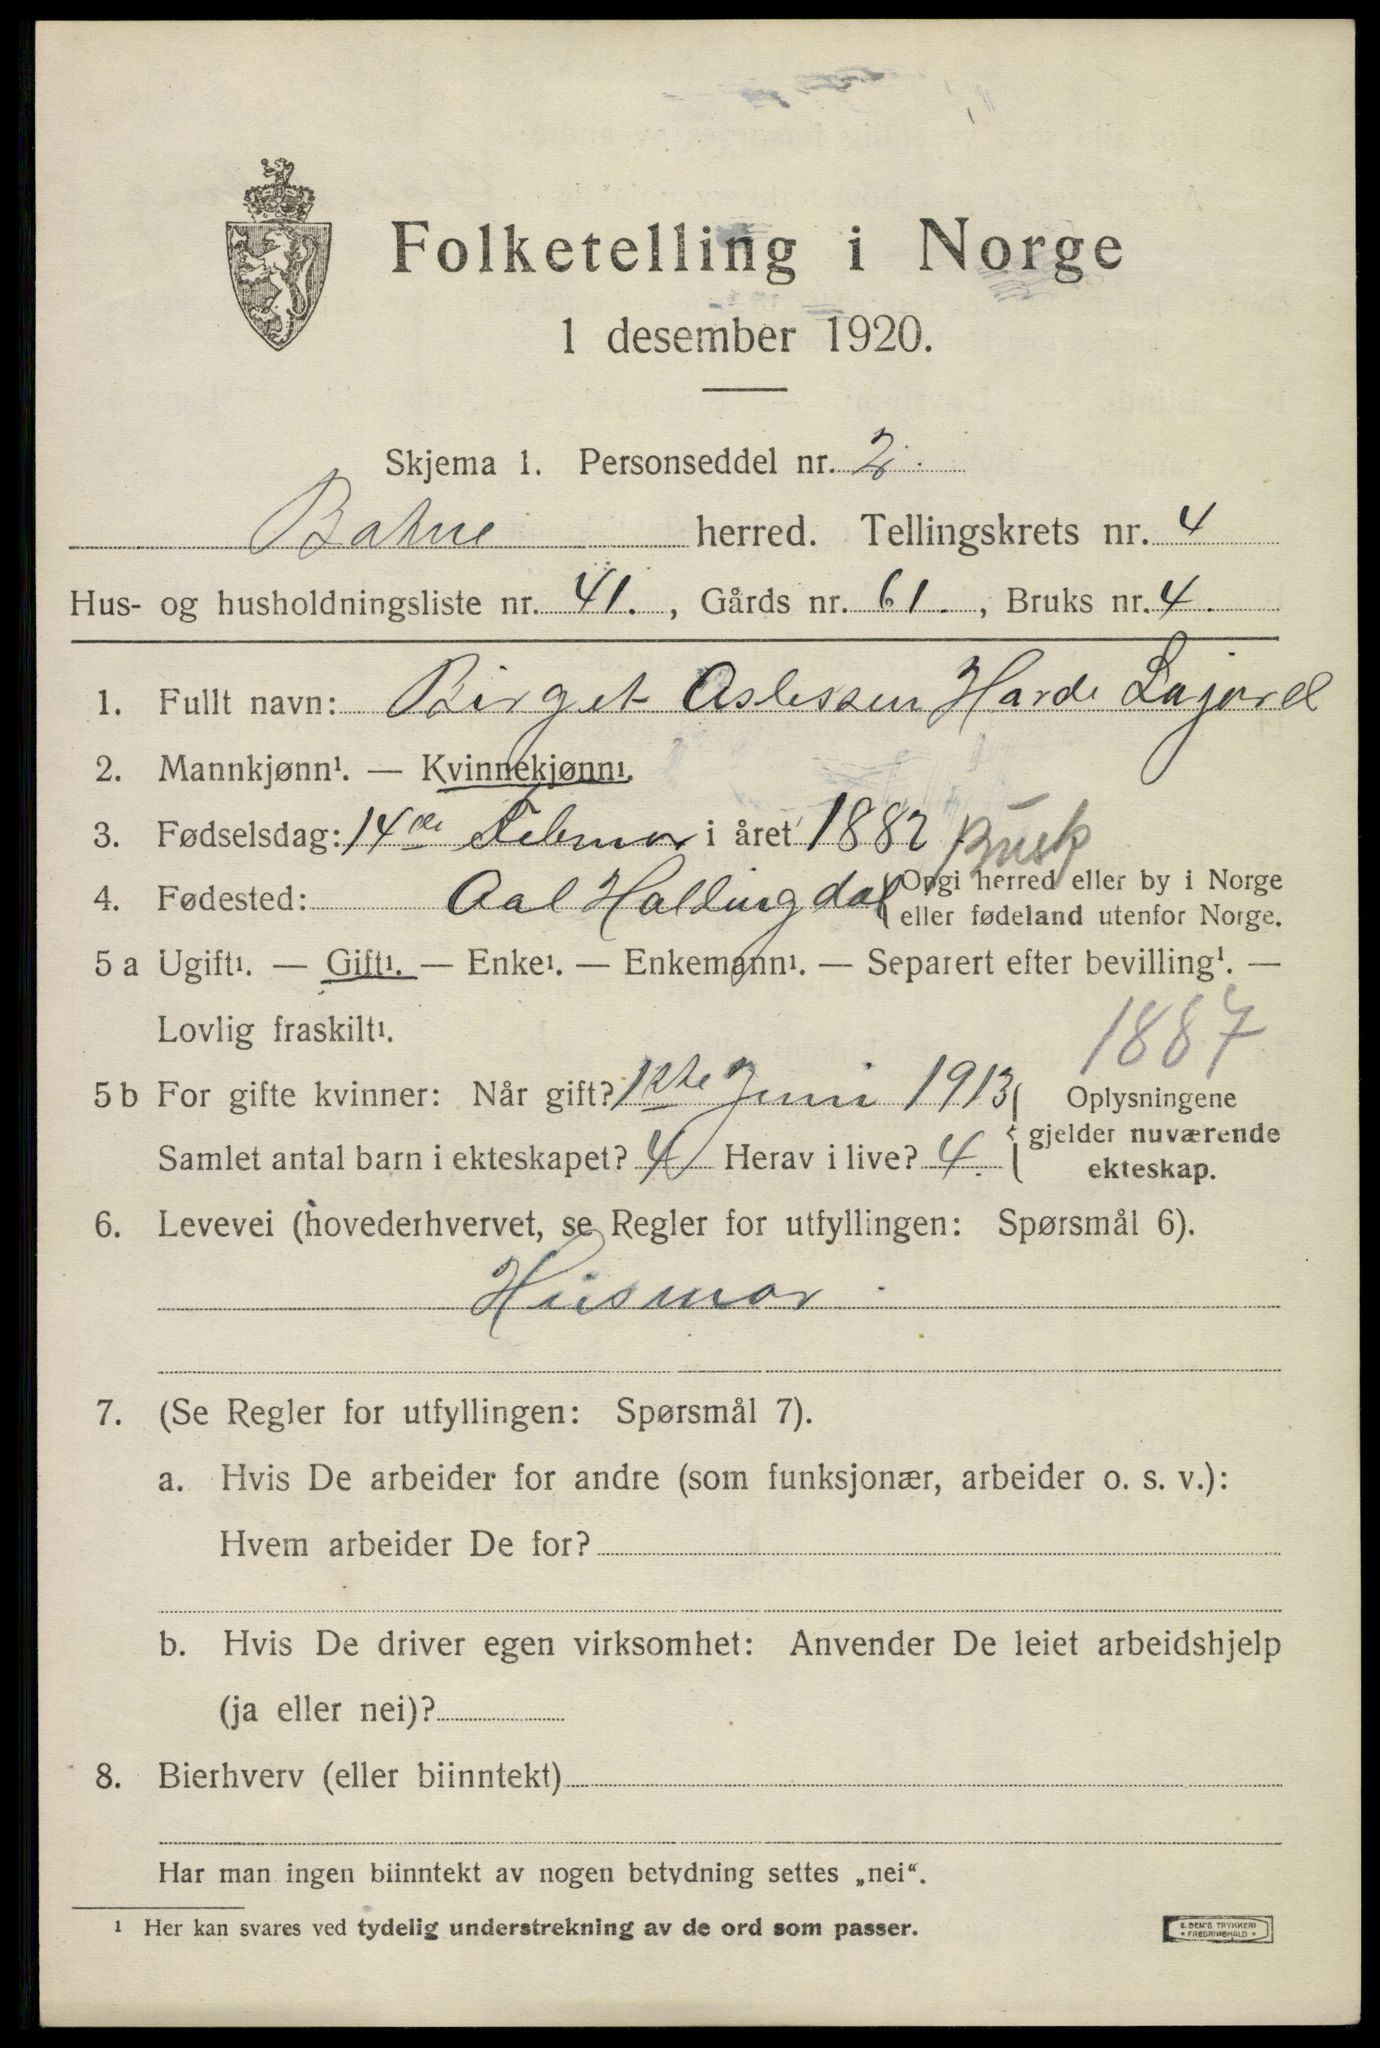 Folketelling i Norge
1 desember 1920.
Skjema 1. Personseddel nr. 2.
herred. Tellingskrets nr. 4
Hus- og husholdningsliste nr. 41., Gårds nr. 61., Bruks nr. 4.
1. Fullt navn: Birget Aslessen Harde
2. Mannkjønn¹. — Kvinnekjønn¹.
3. Fødselsdag: 14de Februar i året 1882 Busk
4. Fødested: Aal Hallingdal (Opgi herred eller by i Norge
eller fødeland utenfor Norge.
5 a Ugift¹. — Gift¹. — Enke¹. — Enkemann¹. — Separert efter bevilling¹. —
Lovlig fraskilt¹.
1887
5 b For gifte kvinner: Når gift? 1ste Juni 1913 Oplysningene
gjelder nuværende
Samlet antal barn i ekteskapet? 4 Herav i live? 4. ekteskap.
6. Levevei (hovederhvervet, se Regler for utfyllingen: Spørsmål 6).
Husmor.
7. (Se Regler for utfyllingen: Spørsmål 7).
a. Hvis De arbeider for andre (som funksjonær, arbeider o. s. v.):
Hvem arbeider De for?
b. Hvis De driver egen virksomhet: Anvender De leiet arbeidshjelp
(ja eller nei)?
8. Bierhverv (eller biinntekt)
Har man ingen biinntekt av nogen betydning settes „nei“.
¹ Her kan svares ved tydelig understrekning av de ord som passer.
E. SEM'S TRYKKERI
* FREDRIKSHALD *